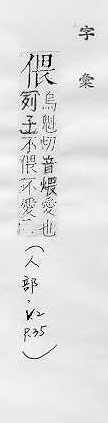 字彙
偎
烏魁切音煨愛也
列子不偎不愛
(人部,V.2
P.35)